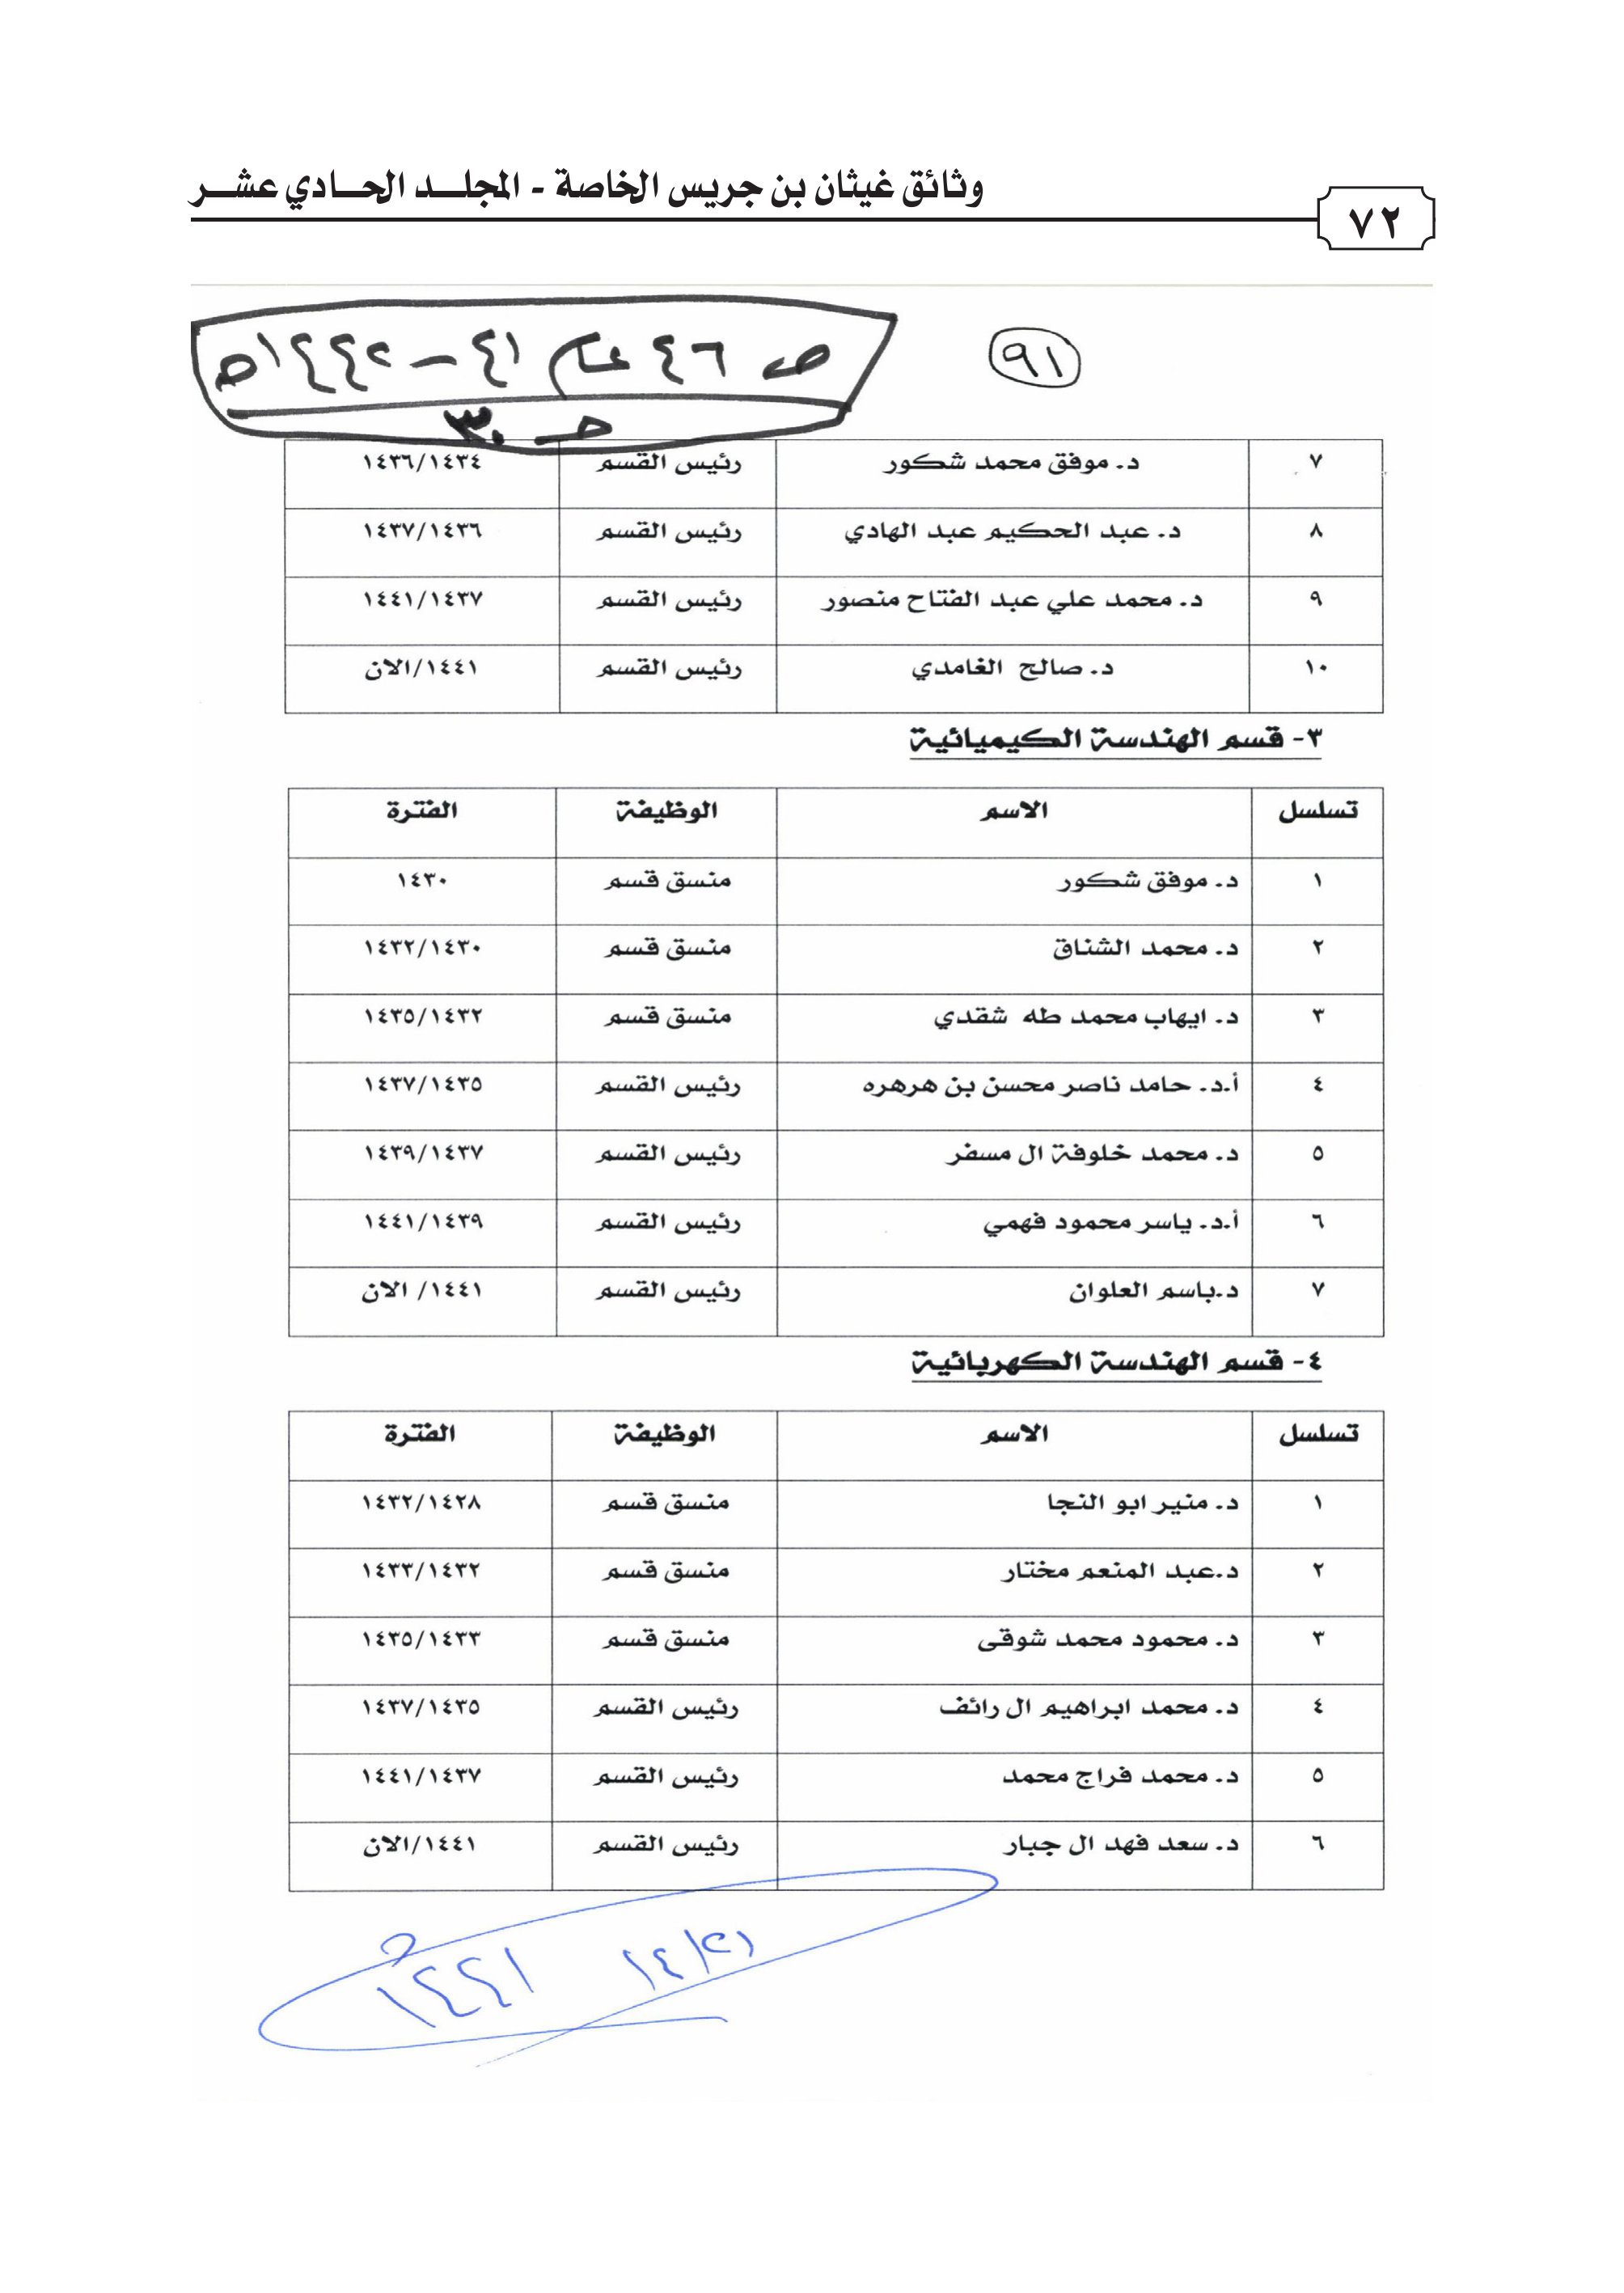 وثائق غيثان بن جريس الخاصة - المجلد الحادي عشر
٧٢
٩١
ص ٤٦ عام ٤١ – ١٤٤٢هـ
حـ ٣٠
٧ د. موفق محمد شكور رئيس القسم ١٤٣٦/١٤٣٤
٨ د. عبد الحكيم عبد الهادي رئيس القسم ١٤٣٧/١٤٣٦
٩ د. محمد علي عبد الفتاح منصور رئيس القسم ١٤٤١/١٤٣٧
١٠ د. صالح الغامدي رئيس القسم ١٤٤١/الان
٣- قسم الهندسة الكيميائية
تسلسل الاسم الوظيفة الفترة
١ د. موفق شكور منسق قسم ١٤٣٠
٢ د. محمد الشناق منسق قسم ١٤٣٢/١٤٣٠
٣ د. ايهاب محمد طه شقدي منسق قسم ١٤٣٥/١٤٣٢
٤ أ.د. حامد ناصر محسن بن هرهره رئيس القسم ١٤٣٧/١٤٣٥
٥ د. محمد خلوفة ال مسفر رئيس القسم ١٤٣٩/١٤٣٧
٦ أ.د. ياسر محمود فهمي رئيس القسم ١٤٤١/١٤٣٩
٧ د.باسم العلوان رئيس القسم ١٤٤١/ الان
٤- قسم الهندسة الكهربائية
تسلسل الاسم الوظيفة الفترة
١ د. منير ابو النجا منسق قسم ١٤٣٢/١٤٢٨
٢ د.عبد المنعم مختار منسق قسم ١٤٣٣/١٤٣٢
٣ د. محمود محمد شوقى منسق قسم ١٤٣٥/١٤٣٣
٤ د. محمد ابراهيم ال رائف رئيس القسم ١٤٣٧/١٤٣٥
٥ د. محمد فراج محمد رئيس القسم ١٤٤١/١٤٣٧
٦ د. سعد فهد ال جبار رئيس القسم ١٤٤١/الان